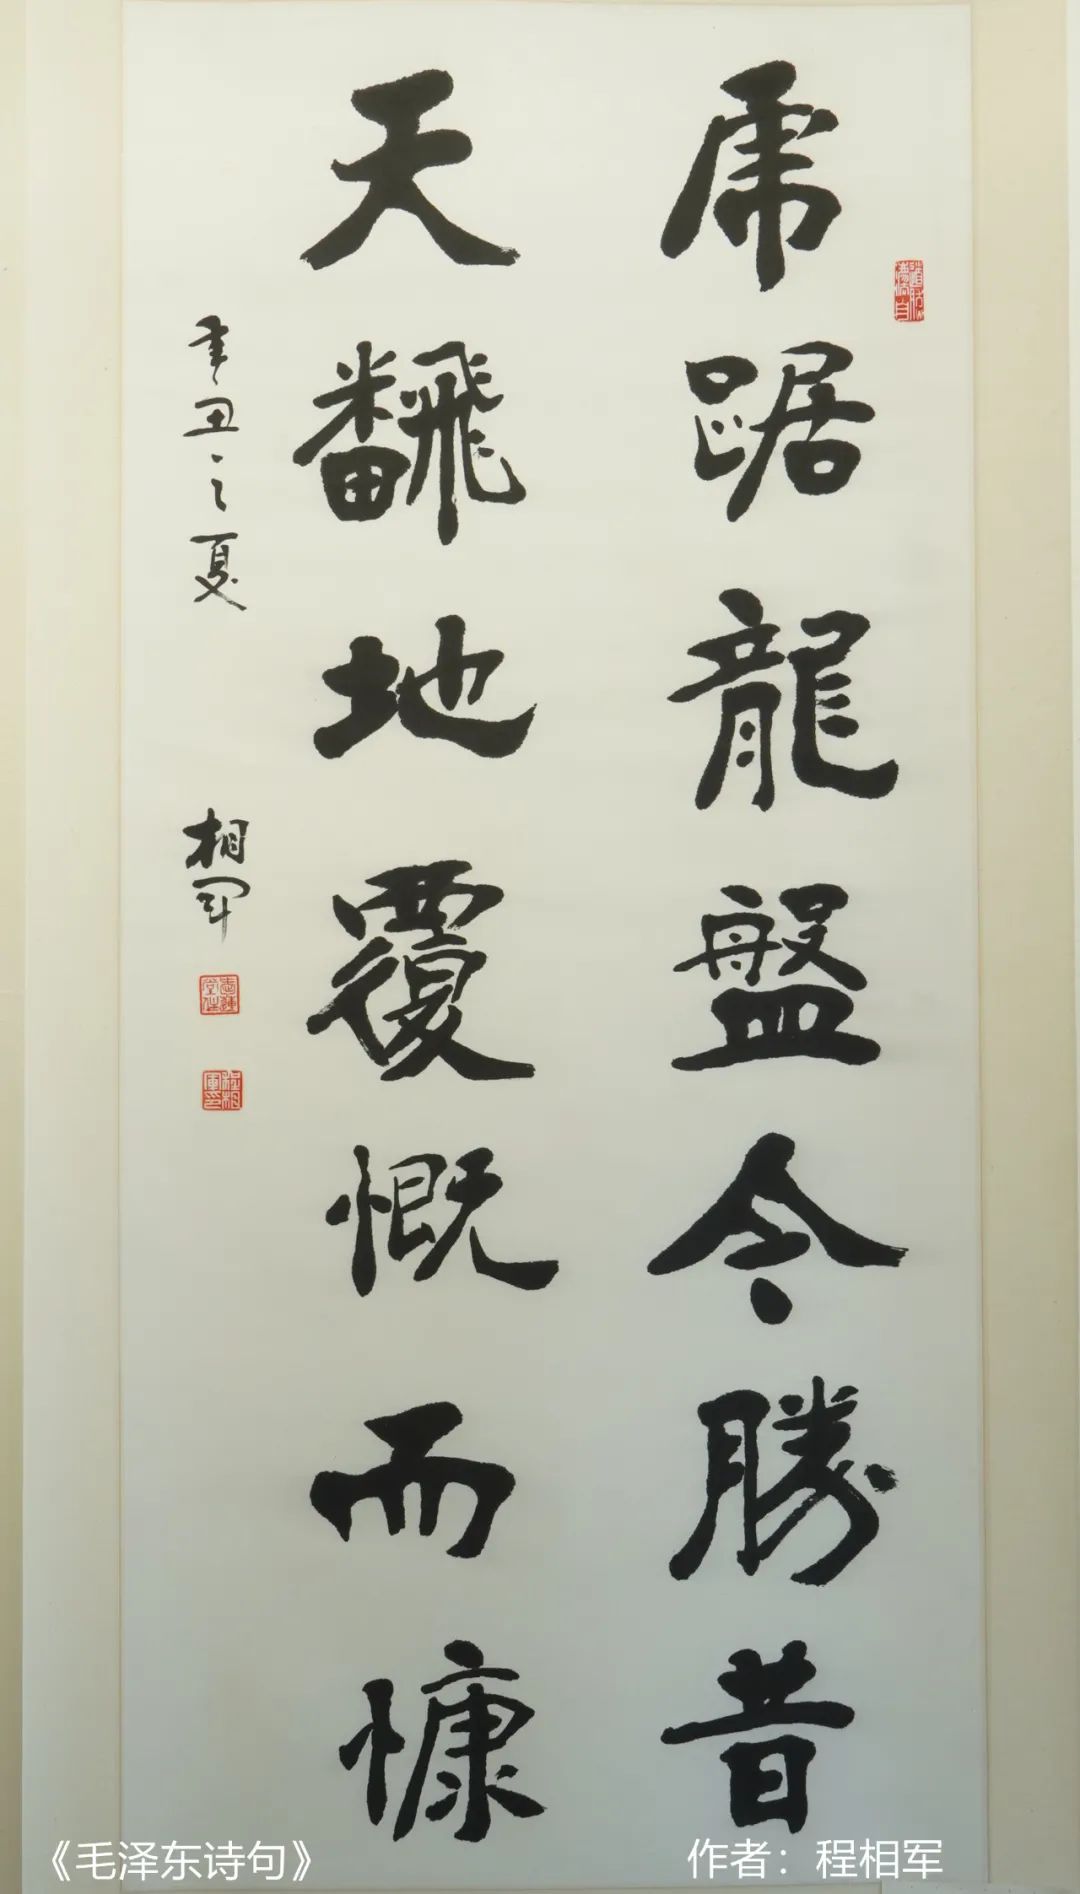 虎踞龍盤今勝昔
天翻地覆慨而慷
辛丑之夏 相軍
《毛泽东诗句》
作者：程相军